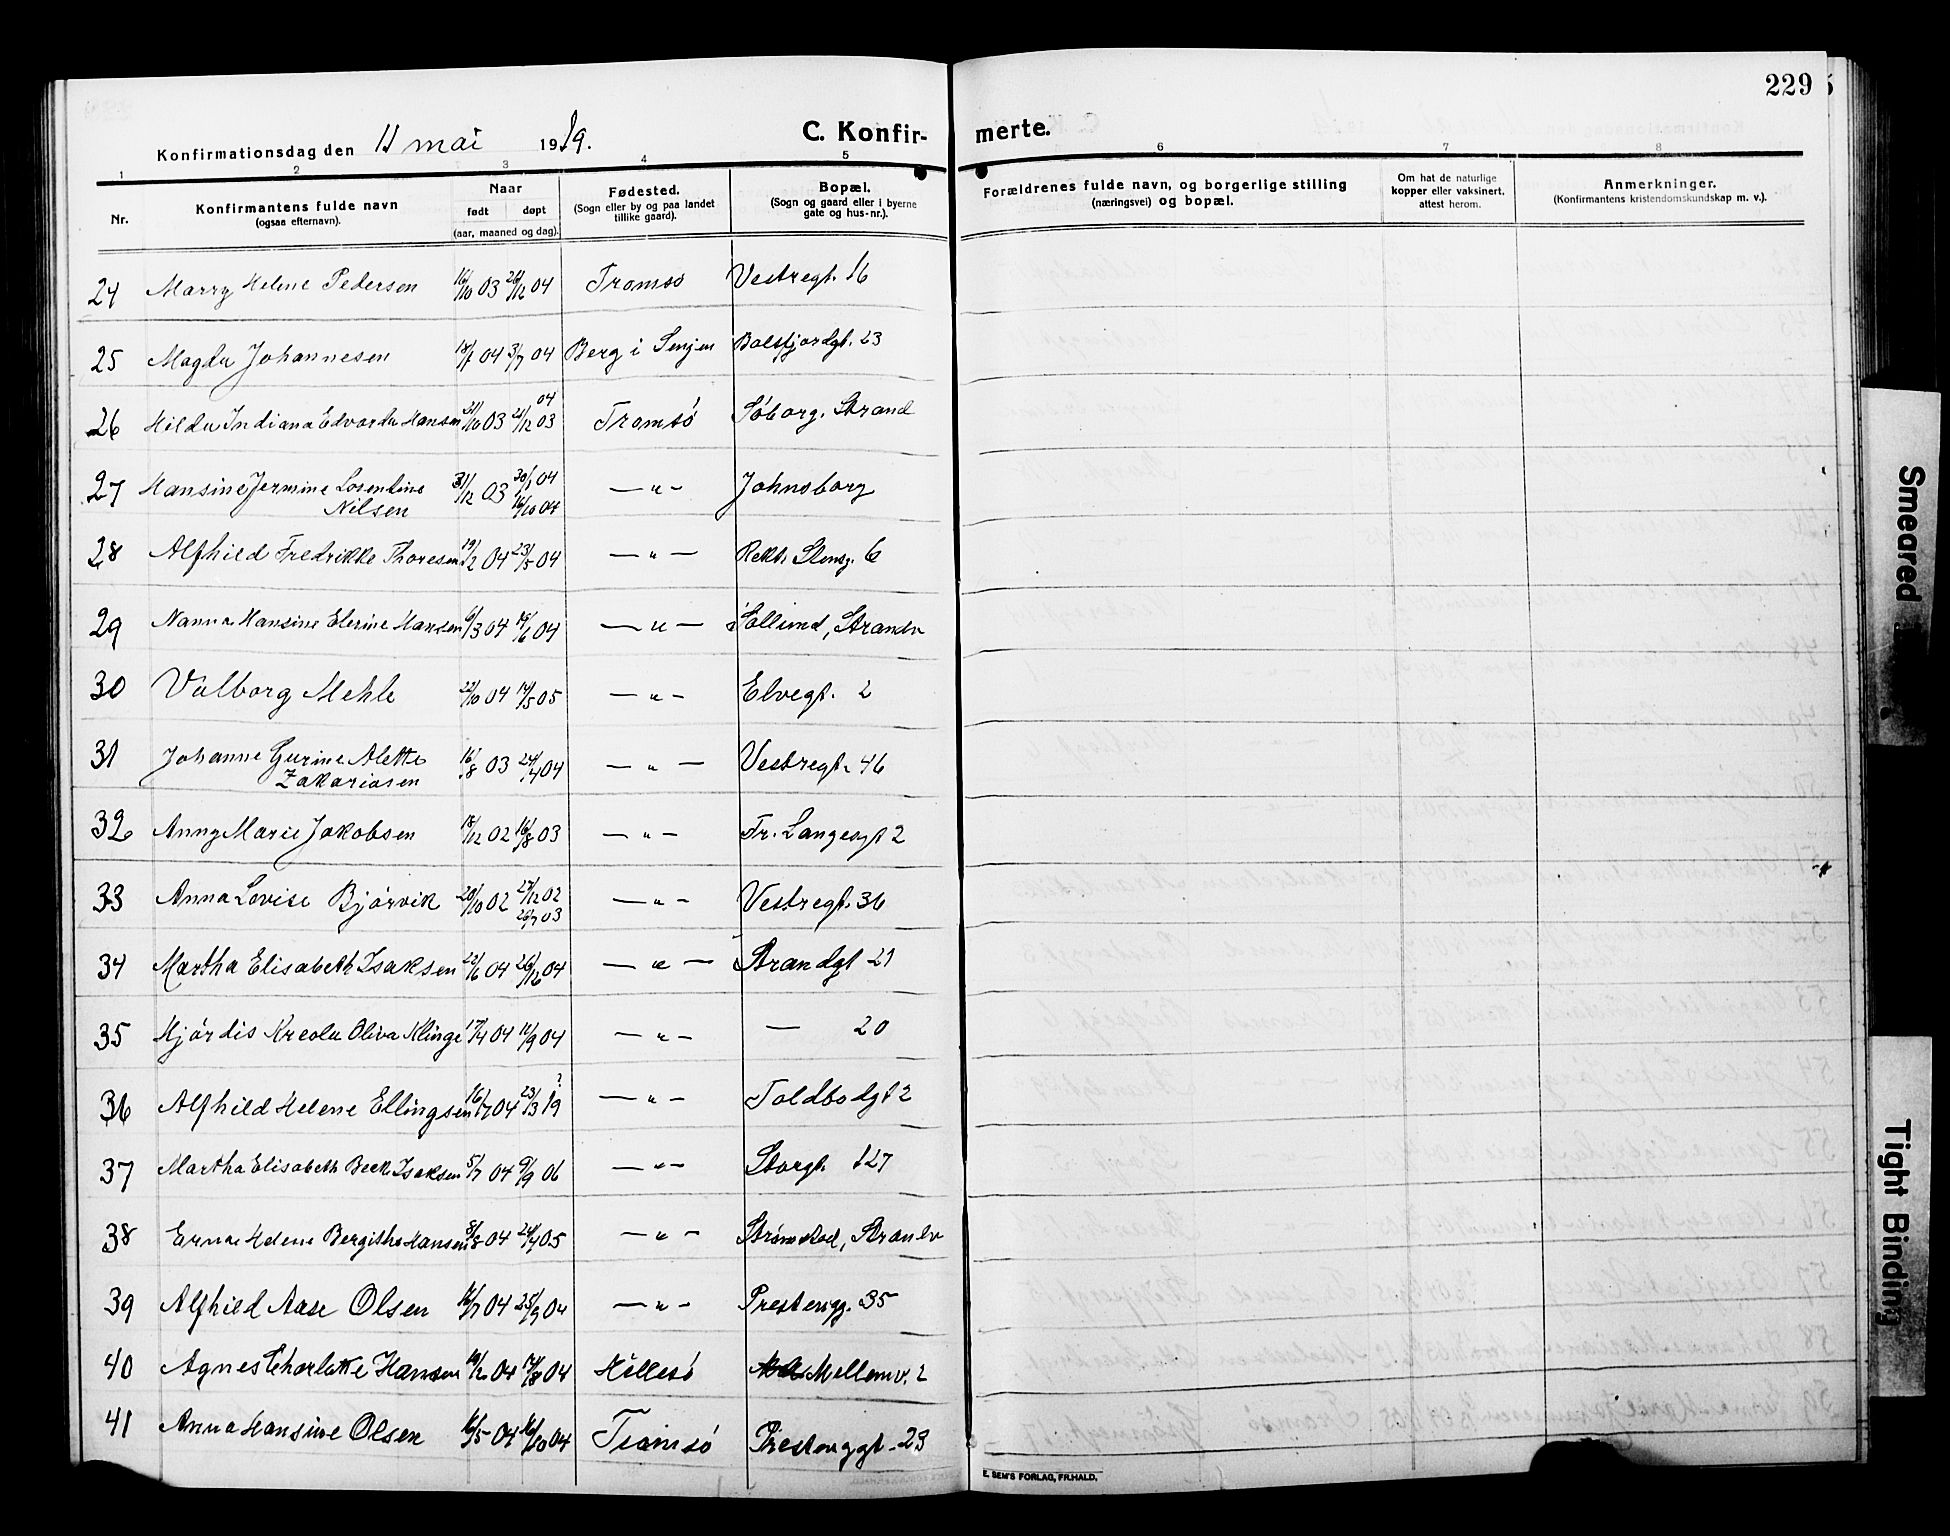 229
Konfirmationsdag den 11 mai 1919. C. Konfir- merte.
1 2 3 4 5 6 7 8
Nr. Konfirmantens fulde navn (ogsaa efternavn). Naar født døpt (aar, maaned og dag). Fødested. (Sogn eller by og paa landet tillike gaard). Bopæl. (Sogn og gaard eller i byerne gate og hus-nr.). Forældrenes fulde navn, og borgerlige stilling (næringsvei) og bopæl. Om hat de naturlige kopper eller vaksinert. attest herom. Anmerkninger. (Konfirmantens kristendomskundskap m. v.).
24 Marry Helene Pedersen 16/10 03 26/12 04 Tromsø Vestregt. 16
25 Magda Johannesen 18/1 04 3/7 04 Berg i Senjen Balsfjordgt. 23
26 Hilda Indiana Edvarda Hansen 21/10 03 21/12 03 04 Tromsö Söborg, Strand
27 Hansine Jermine Losentine 31/12 03 30/1 04 — " — Johnsborg
Nilsen 16/10 04
28 Alfhild Fredrikke Thoresen 19/2 04 23/5 04 — " — Rekt. Stensg. 6
29 Nanna Hansine Elerine Hansen 6/3 04 19/6 04 — " — Sollund, Strandv
30 Valborg Mehle 22/10 04 14/5 05 — " — Elvegt. 2
31 Johanne Gurine Alette 16/8 03 24/4 04 — " — Vestregt. 46
Zakariasen
32 Anny Marie Jakobsen 18/12 02 16/8 03 — " — Fr. Langesgt 2
33 Anna Lovise Bjørvik 20/10 02 27/12 02 — " — Vestregt. 36
26/7 03
34 Martha Elisabeth Isaksen 22/6 04 26/12 04 — " — Strandgt 21
35 Hjördis Kreola Oliva Klinge 17/4 04 11/9 04 — " — — 20
36 Alfhild Helene Ellingsen 16/7 04 23/3 19 ? — " — Toldbodgt 2
37 Martha Elisabeth Beck Isaksen 5/7 04 9/9 06 — " — Storgt. 127
38 Erna Helene Bergitha Hansen 8/8 04 24/4 05 — " — Strømstad, Strandv
39 Alfhild Aase Olsen 16/7 04 25/9 04 — " — Prestengg. 35
40 Agnes Charlotte Hansen 19/2 04 14/8 04 Hillesö Mellemv. 2
41 Anna Hansine Olsen 16/5 04 16/10 04 Tromsö Prestenggt. 23
E. SEM'S FORLAG, FR.HALD.
Smeared
Tight Binding